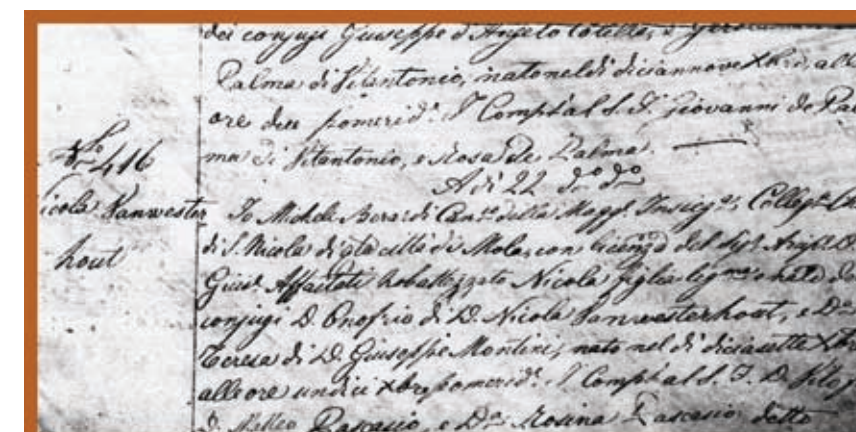 dei conjugi Giuseppe d'Angelo Cotella, e
Palma di Vitantonio, nato nel dì diciannove Xbre, alle
ore due pomerid.e I Comp: al S. F. Giovanni de Pal
ma di Vitantonio, e Rosa de Palma.
N.o 416
A dì 22 d.o d.o
Nicola Vanwester
hout
Io Michele Berardi Can.co della Magg.e Insig.e Colleg.ta Ch
di S. Nicola di q.ta città di Mola, con licenza del Sig.r Arcip.e D.
Gius.e Affaitati ho battezzato Nicola figlio leg.mo e nat.le de
conjugi D. Onofrio di D. Nicola Vanwesterhout, e D.a
Teresa di D. Giuseppe Montini, nato nel dì diciasette Xbre
alle ore undici pomerid.e I Comp: al S. F. D. Vito
D. Matteo Pascasio, e D.a Rosina Pascasio detto